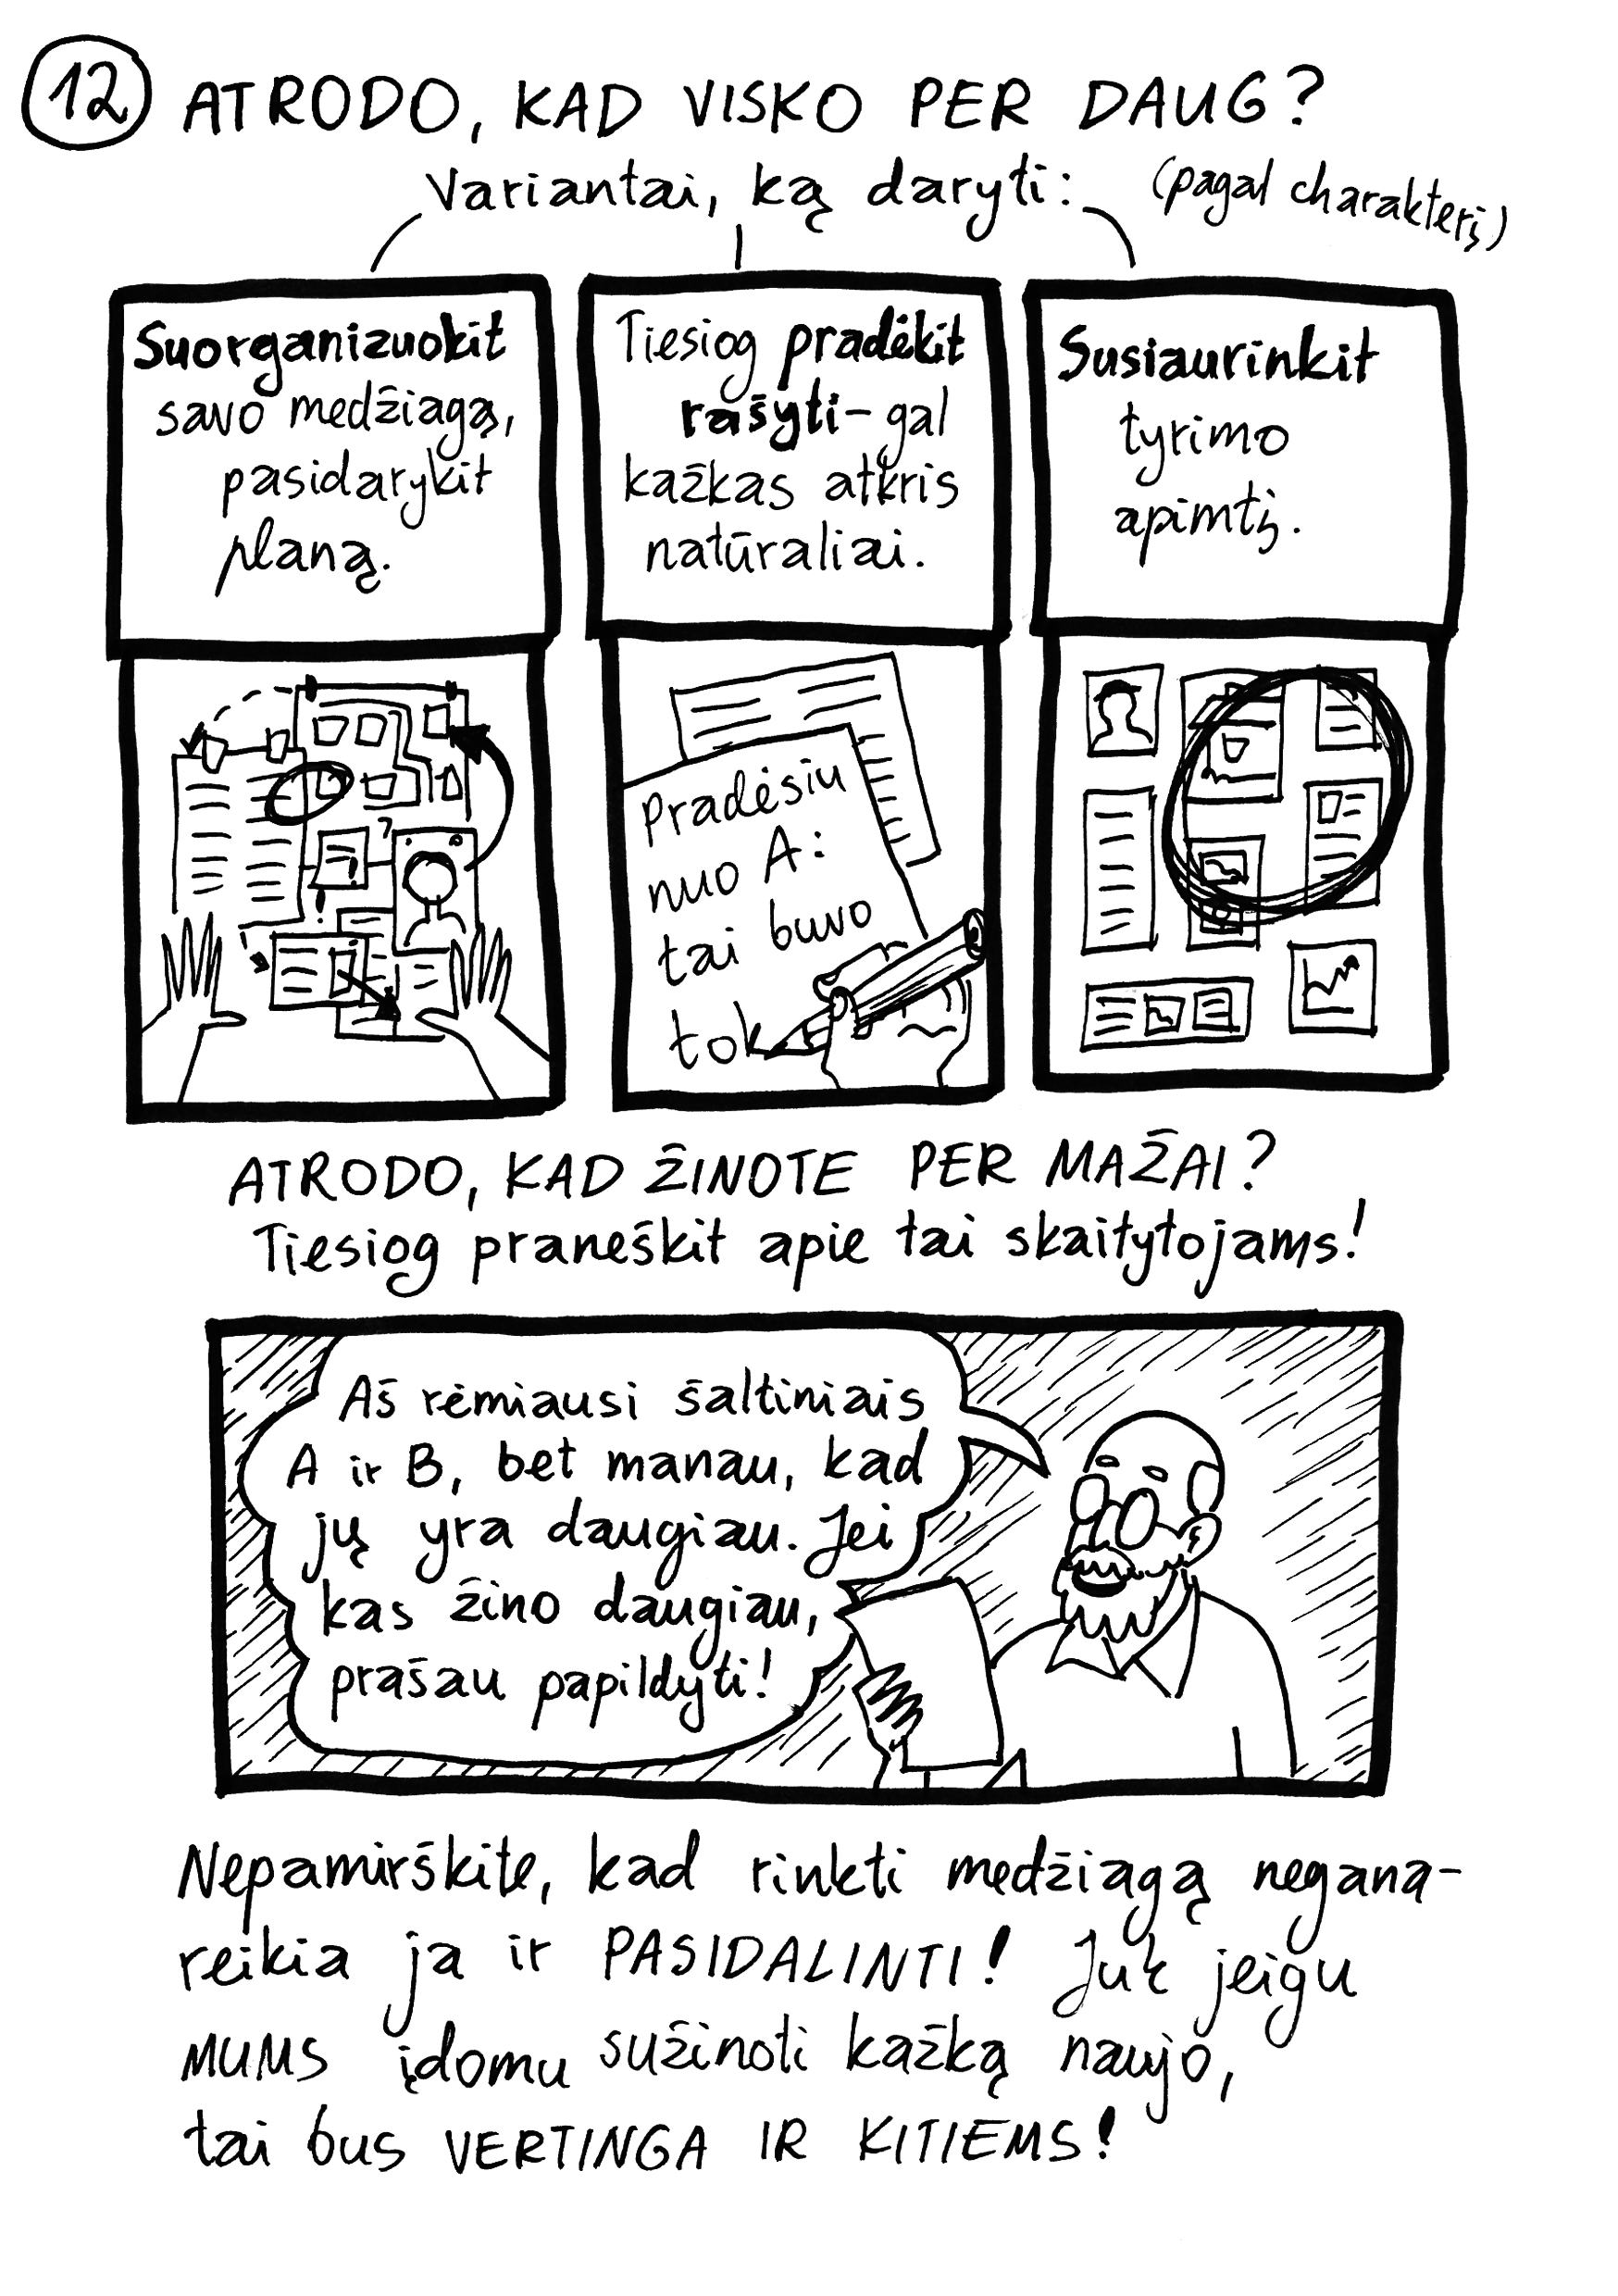 12 ATRODO, KAD VISKO PER DAUG?
Variantai, ką daryti: (pagal charakterį)
Suorganizuokit
savo medžiagą,
pasidarykit
planą.
Tiesiog pradėkit
rašyti - gal
kažkas atkris
natūraliai.
Susiaurinkit
tyrimo
apimtį.
Pradėsiu
nuo A:
tai buvo
tok
ATRODO, KAD ŽINOTE PER MAŽAI?
Tiesiog praneškit apie tai skaitytojams!
Aš rėmiausi šaltiniais
A ir B, bet manau, kad
jų yra daugiau. Jei
kas žino daugiau,
prašau papildyti!
Nepamirškite, kad rinkti medžiagą negana-
reikia ja ir PASIDALINTI! Juk jeigu
MUMS įdomu sužinoti kažką naujo,
tai bus VERTINGA IR KITIEMS!